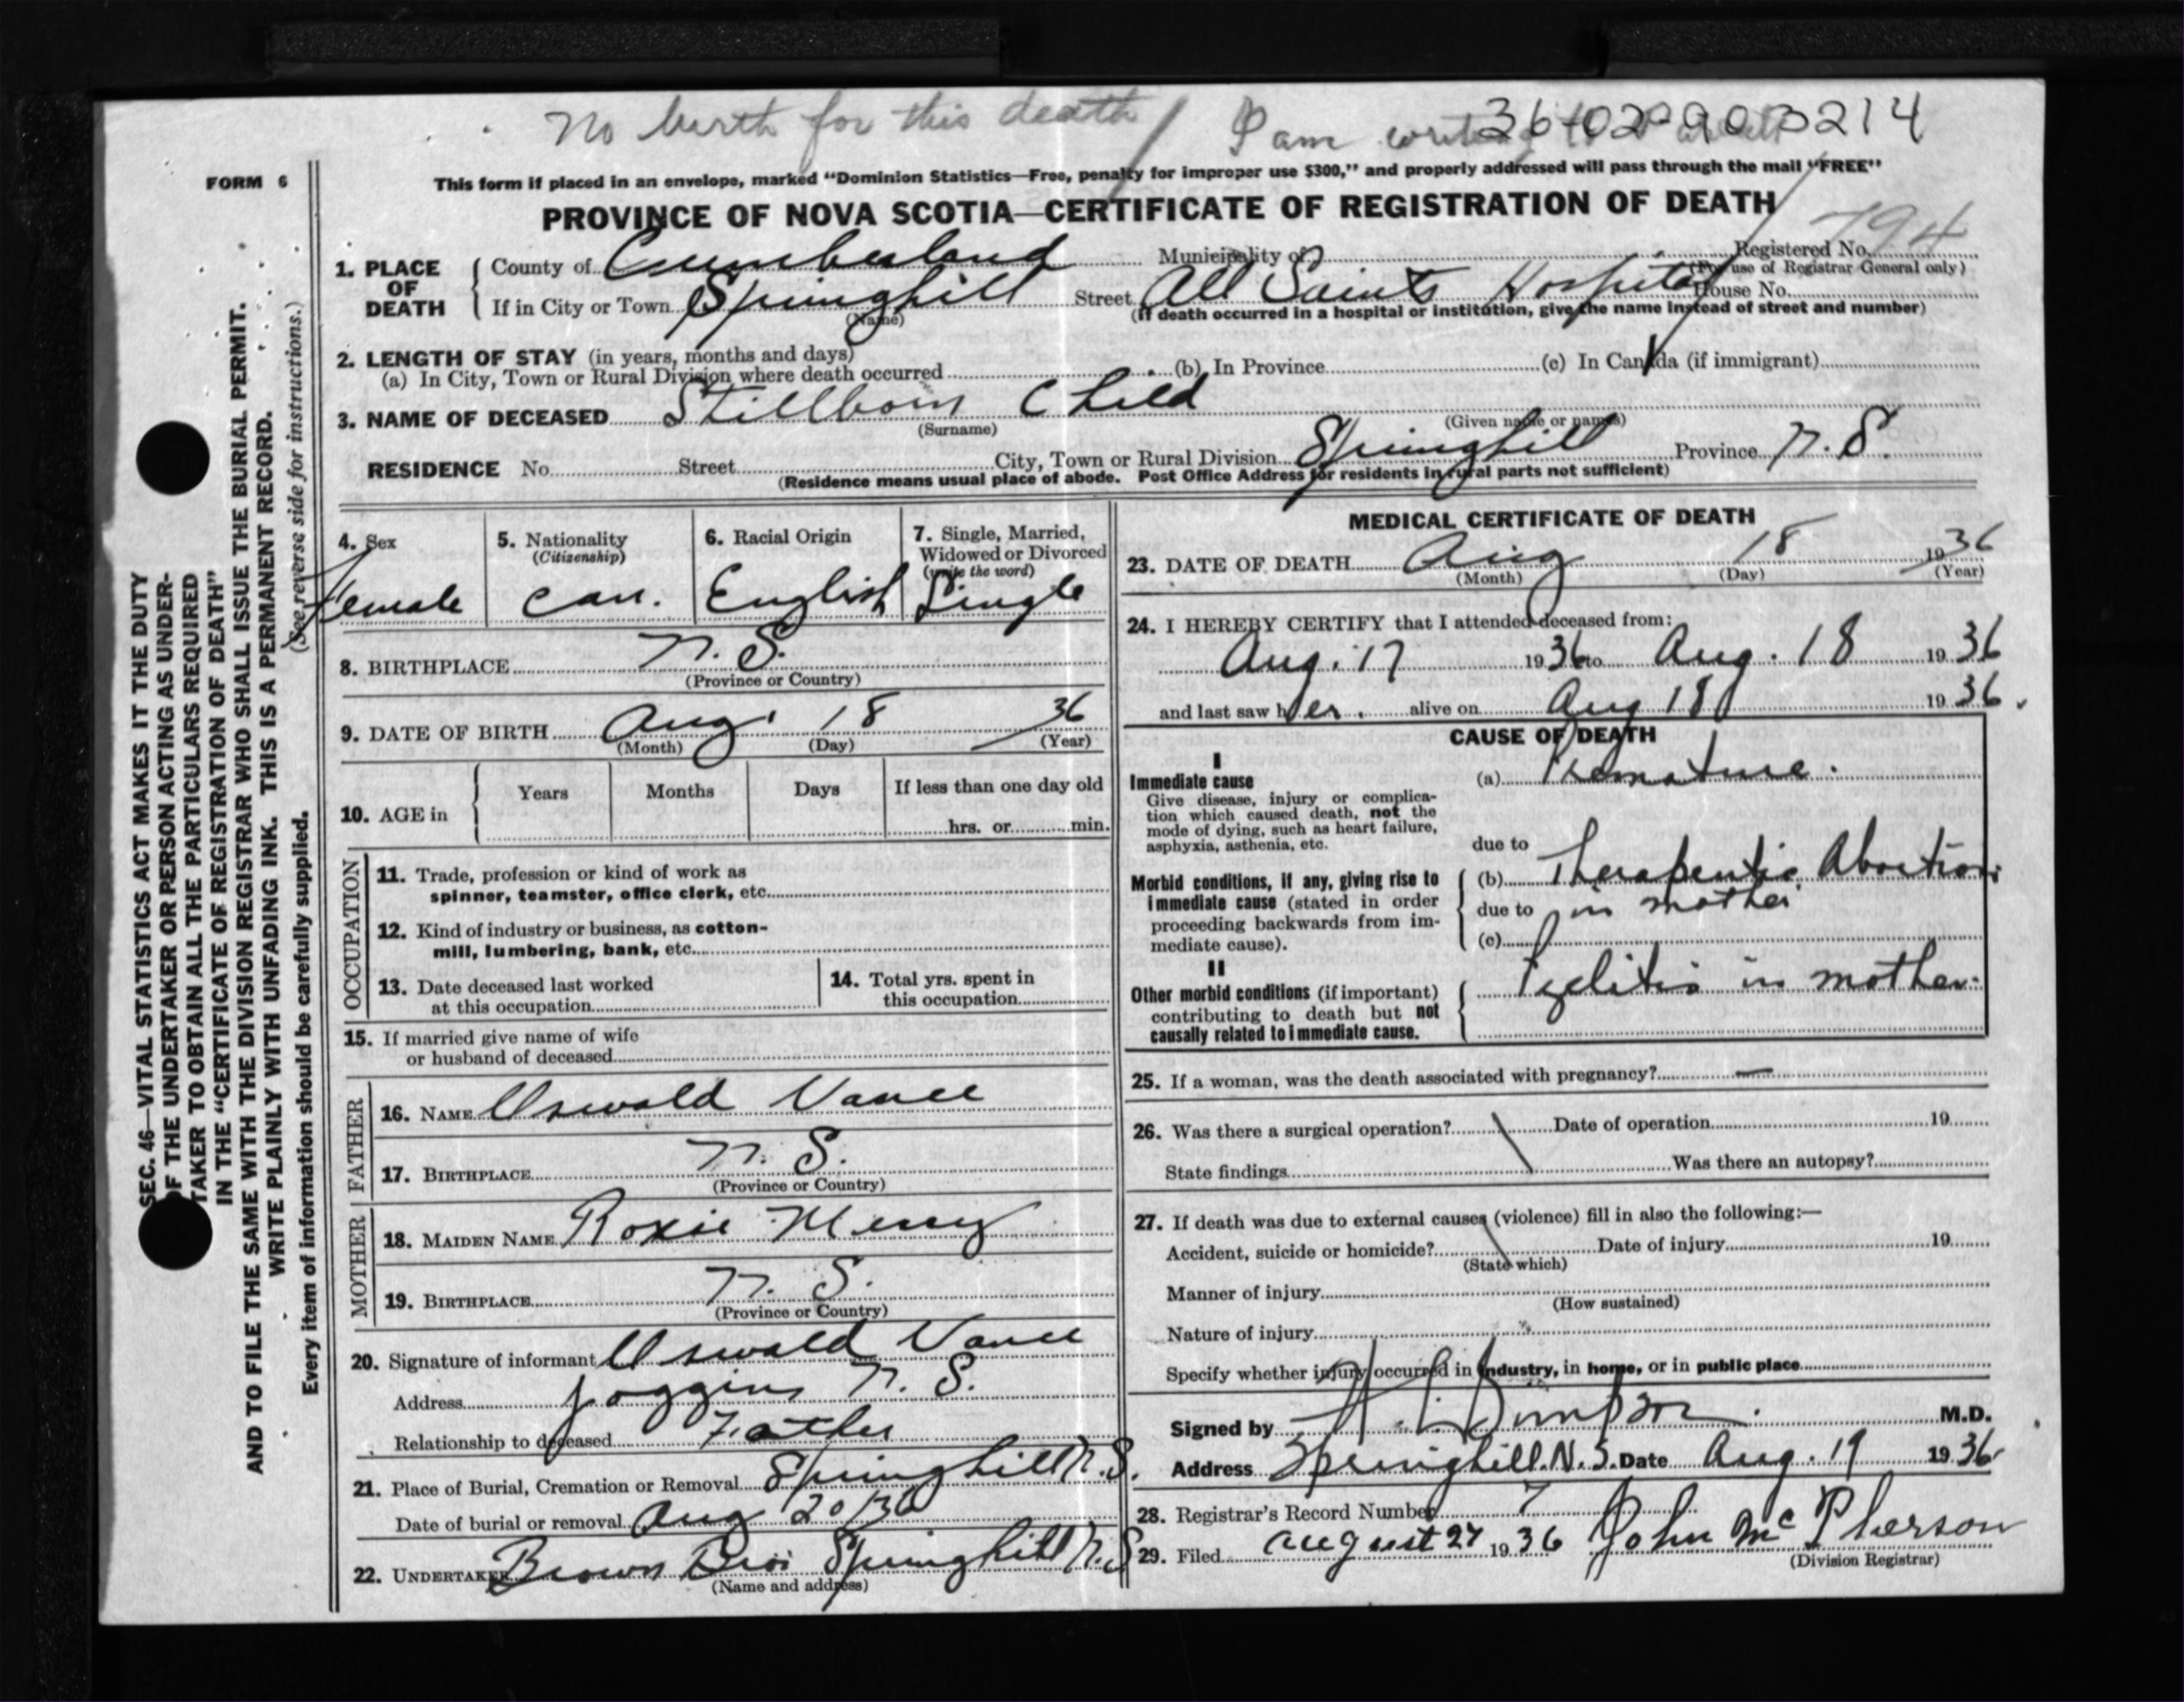 No birth for this death / I am
36-02-003214
FORM 6
This form if placed in an envelope, marked "Dominion Statistics—Free, penalty for improper use $300," and properly addressed will pass through the mail "FREE"
PROVINCE OF NOVA SCOTIA—CERTIFICATE OF REGISTRATION OF DEATH
794
1. PLACE OF DEATH { County of Cumberland Municipality of Registered No.
(For use of Registrar General only)
If in City or Town Springhill Street All Saints Hospital House No.
(Name) (If death occurred in a hospital or institution, give the name instead of street and number)
2. LENGTH OF STAY (in years, months and days)
(a) In City, Town or Rural Division where death occurred (b) In Province (c) In Canada (if immigrant)
3. NAME OF DECEASED Stillborn Child
(Surname) (Given name or names)
RESIDENCE No. Street City, Town or Rural Division Springhill Province N. S.
(Residence means usual place of abode. Post Office Address for residents in rural parts not sufficient)
4. Sex 5. Nationality 6. Racial Origin 7. Single, Married,
(Citizenship) Widowed or Divorced
(write the word)
Female Can. English Single
8. BIRTHPLACE N. S.
(Province or Country)
9. DATE OF BIRTH Aug. 18 36
(Month) (Day) (Year)
10. AGE in { Years Months Days If less than one day old
hrs. or min.
OCCUPATION
11. Trade, profession or kind of work as
spinner, teamster, office clerk, etc.
12. Kind of industry or business, as cotton-
mill, lumbering, bank, etc.
13. Date deceased last worked
at this occupation
14. Total yrs. spent in
this occupation
15. If married give name of wife
or husband of deceased
FATHER
16. NAME Oswald Vance
17. BIRTHPLACE N. S.
(Province or Country)
MOTHER
18. MAIDEN NAME Roxie
19. BIRTHPLACE N. S.
(Province or Country)
20. Signature of informant Oswald Vance
Address Joggins N. S.
Relationship to deceased Father
21. Place of Burial, Cremation or Removal Springhill N.S.
Date of burial or removal Aug 20/36
22. UNDERTAKER Brown Bros Springhill N.S
(Name and address)
MEDICAL CERTIFICATE OF DEATH
23. DATE OF DEATH Aug 18 1936
(Month) (Day) (Year)
24. I HEREBY CERTIFY that I attended deceased from:
Aug. 17 1936 to Aug. 18 1936
and last saw her. alive on Aug 18 1936.
CAUSE OF DEATH
I
Immediate cause (a) Premature.
Give disease, injury or complica-
tion which caused death, not the
mode of dying, such as heart failure,
asphyxia, asthenia, etc.
due to
Morbid conditions, if any, giving rise to { (b) Therapeutic Abortion
immediate cause (stated in order due to in mother
proceeding backwards from im-
mediate cause). (c)
II
Other morbid conditions (if important) { Pyelitis in mother.
contributing to death but not
causally related to immediate cause.
25. If a woman, was the death associated with pregnancy? —
26. Was there a surgical operation? \ Date of operation 19
State findings Was there an autopsy?
27. If death was due to external causes (violence) fill in also the following:—
Accident, suicide or homicide? \ Date of injury 19
(State which)
Manner of injury
(How sustained)
Nature of injury
Specify whether injury occurred in industry, in home, or in public place
Signed by M.D.
Address Springhill. N. S. Date Aug. 19 1936
28. Registrar's Record Number 7
29. Filed august 27 1936 John McPherson
(Division Registrar)
SEC. 46—VITAL STATISTICS ACT MAKES IT THE DUTY
OF THE UNDERTAKER OR PERSON ACTING AS UNDER-
TAKER TO OBTAIN ALL THE PARTICULARS REQUIRED
IN THE "CERTIFICATE OF REGISTRATION OF DEATH"
AND TO FILE THE SAME WITH THE DIVISION REGISTRAR WHO SHALL ISSUE THE BURIAL PERMIT.
WRITE PLAINLY WITH UNFADING INK. THIS IS A PERMANENT RECORD.
(See reverse side for instructions.)
Every item of information should be carefully supplied.